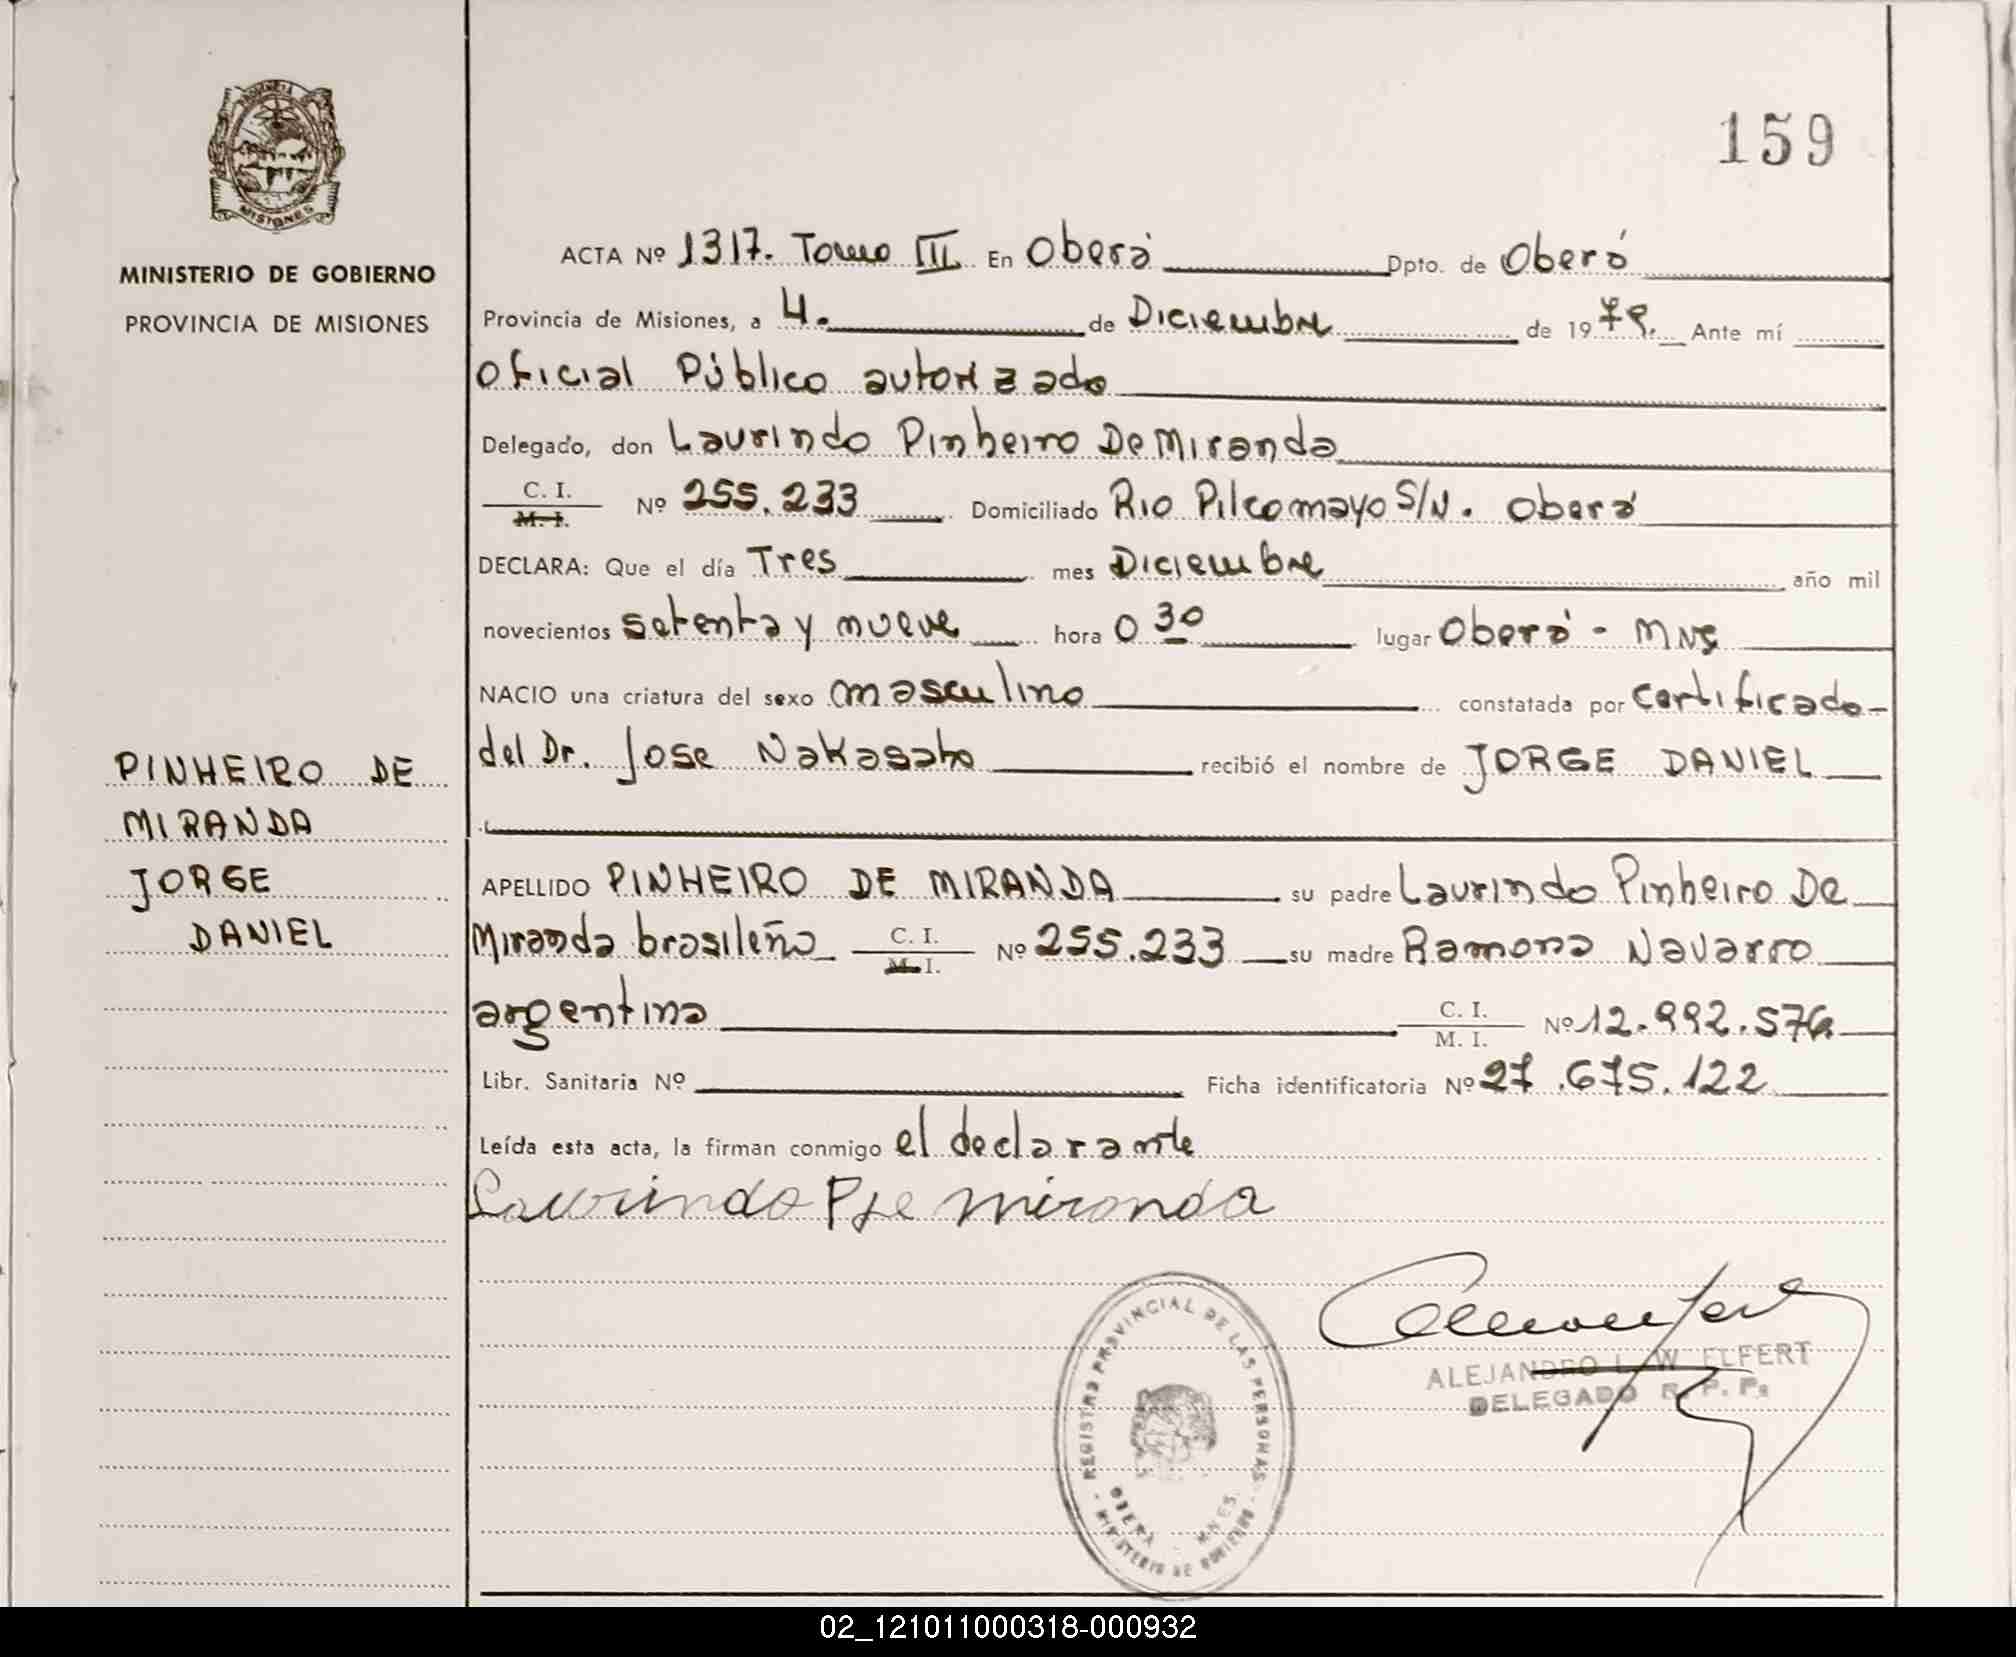 159
PROVINCIA
MISIONES
MINISTERIO DE GOBIERNO
PROVINCIA DE MISIONES
ACTA Nº 1317. Tomo III En Oberá Dpto. de Oberá
Provincia de Misiones, a 4. de Diciembre de 1979. Ante mí
Oficial Público autorizado
Delegado, don Laurindo Pinheiro De Miranda
C. I.
M. I.
Nº 255.233 Domiciliado Rio Pilcomayo S/N. Oberá
DECLARA: Que el día Tres mes Diciembre año mil
novecientos setenta y nueve hora 0 30 lugar Oberá - Mnes
NACIO una criatura del sexo masculino constatada por certificado
del Dr. Jose Nakasato recibió el nombre de JORGE DANIEL
PINHEIRO DE
MIRANDA
JORGE
DANIEL
APELLIDO PINHEIRO DE MIRANDA su padre Laurindo Pinheiro De
Miranda brasileño C. I. M. I. Nº 255.233 su madre Ramona Navarro
argentina C. I. M. I. Nº 12.992.576
Libr. Sanitaria Nº Ficha identificatoria Nº 27.675.122
Leída esta acta, la firman conmigo el declarante
Laurindo P de miranda
ALEJANDRO L. W. ELFERT
DELEGADO R. P. P.
REGISTRO PROVINCIAL DE LAS PERSONAS
OBERA - MNES.
MINISTERIO DE GOBIERNO
02_121011000318-000932